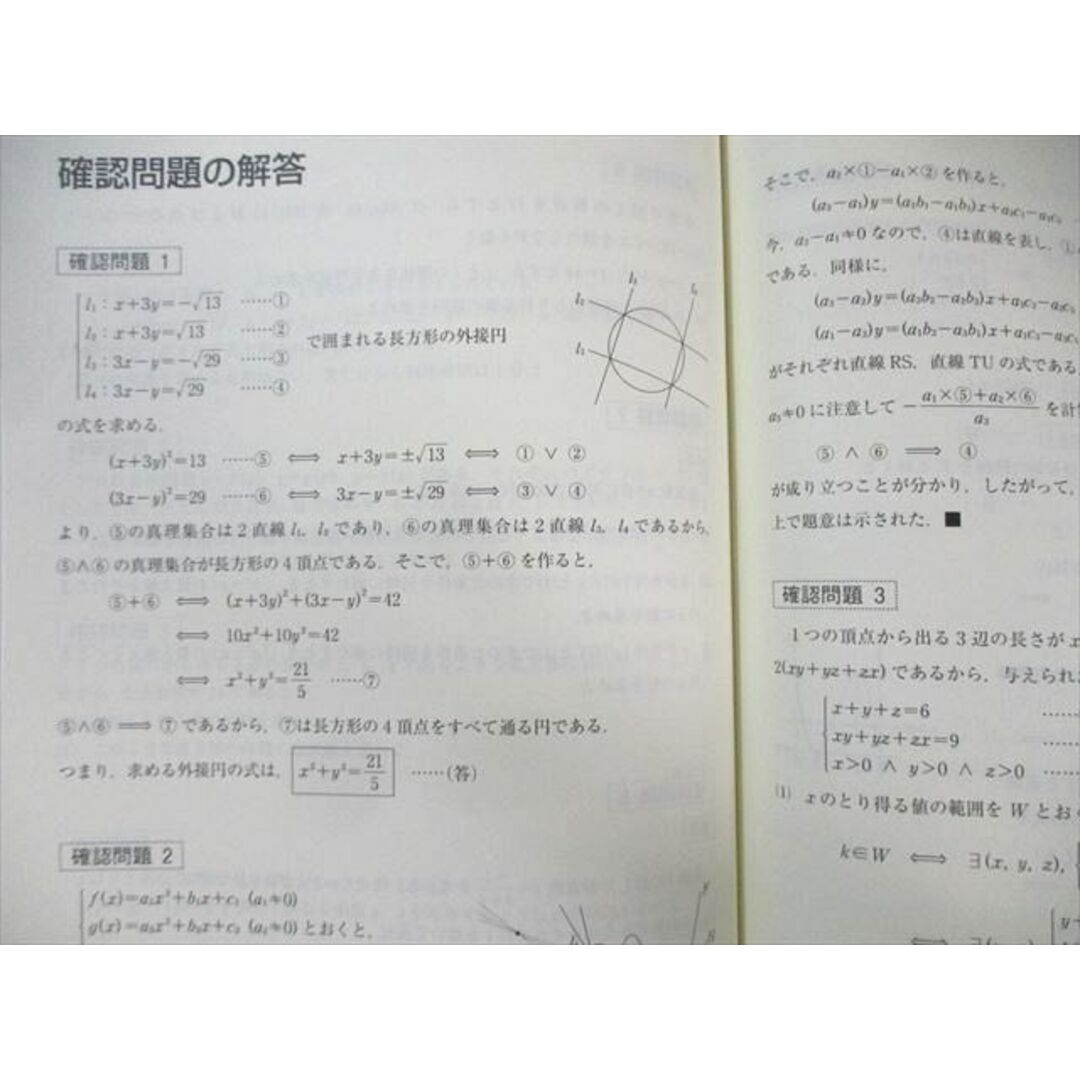 確認問題の解答
確認問題 1
l₁ : x+3y=-√13 ……①
l₂ : x+3y=√13 ……②
l₃ : 3x-y=-√29 ……③
l₄ : 3x-y=√29 ……④
で囲まれる長方形の外接円
l₃ l₄
l₂
l₁
の式を求める.
(x+3y)²=13 ……⑤ ⟺ x+3y=±√13 ⟺ ① ∨ ②
(3x-y)²=29 ……⑥ ⟺ 3x-y=±√29 ⟺ ③ ∨ ④
より, ⑤の真理集合は2直線l₁, l₂であり, ⑥の真理集合は2直線l₃, l₄であるから,
⑤∧⑥の真理集合が長方形の4頂点である. そこで, ⑤+⑥を作ると,
⑤+⑥ ⟺ (x+3y)²+(3x-y)²=42
⟺ 10x²+10y²=42
⟺ x²+y²=21/5 ……⑦
⑤∧⑥ ⟹ ⑦であるから, ⑦は長方形の4頂点をすべて通る円である.
つまり, 求める外接円の式は, x²+y²=21/5 ……(答)
確認問題 2
f(x)=a₁x²+b₁x+c₁ (a₁≠0)
g(x)=a₂x²+b₂x+c₂ (a₂≠0) とおくと,
y
そこで, a₂×①-a₁×②を作ると,
(a₂-a₁)y=(a₂b₁-a₁b₂)x+a₂c₁-a₁c₂
今, a₂-a₁≠0なので, ④は直線を表し, ①
である. 同様に,
(a₃-a₂)y=(a₃b₂-a₂b₃)x+a₃c₂-a₂c₃
(a₁-a₃)y=(a₁b₃-a₃b₁)x+a₁c₃-a₃c₁
がそれぞれ直線RS, 直線TUの式である
a₃≠0に注意して -(a₁×⑤+a₂×⑥)/a₃ を計
⑤ ∧ ⑥ ⟹ ④
が成り立つことが分かり, したがって,
上で題意は示された. ■
確認問題 3
1つの頂点から出る3辺の長さがx
2(xy+yz+zx)であるから, 与えられ
x+y+z=6 ……
xy+yz+zx=9 ……
x>0 ∧ y>0 ∧ z>0 ……
(1) xのとり得る値の範囲をWとお
k∈W ⟺ ∃(x, y, z),